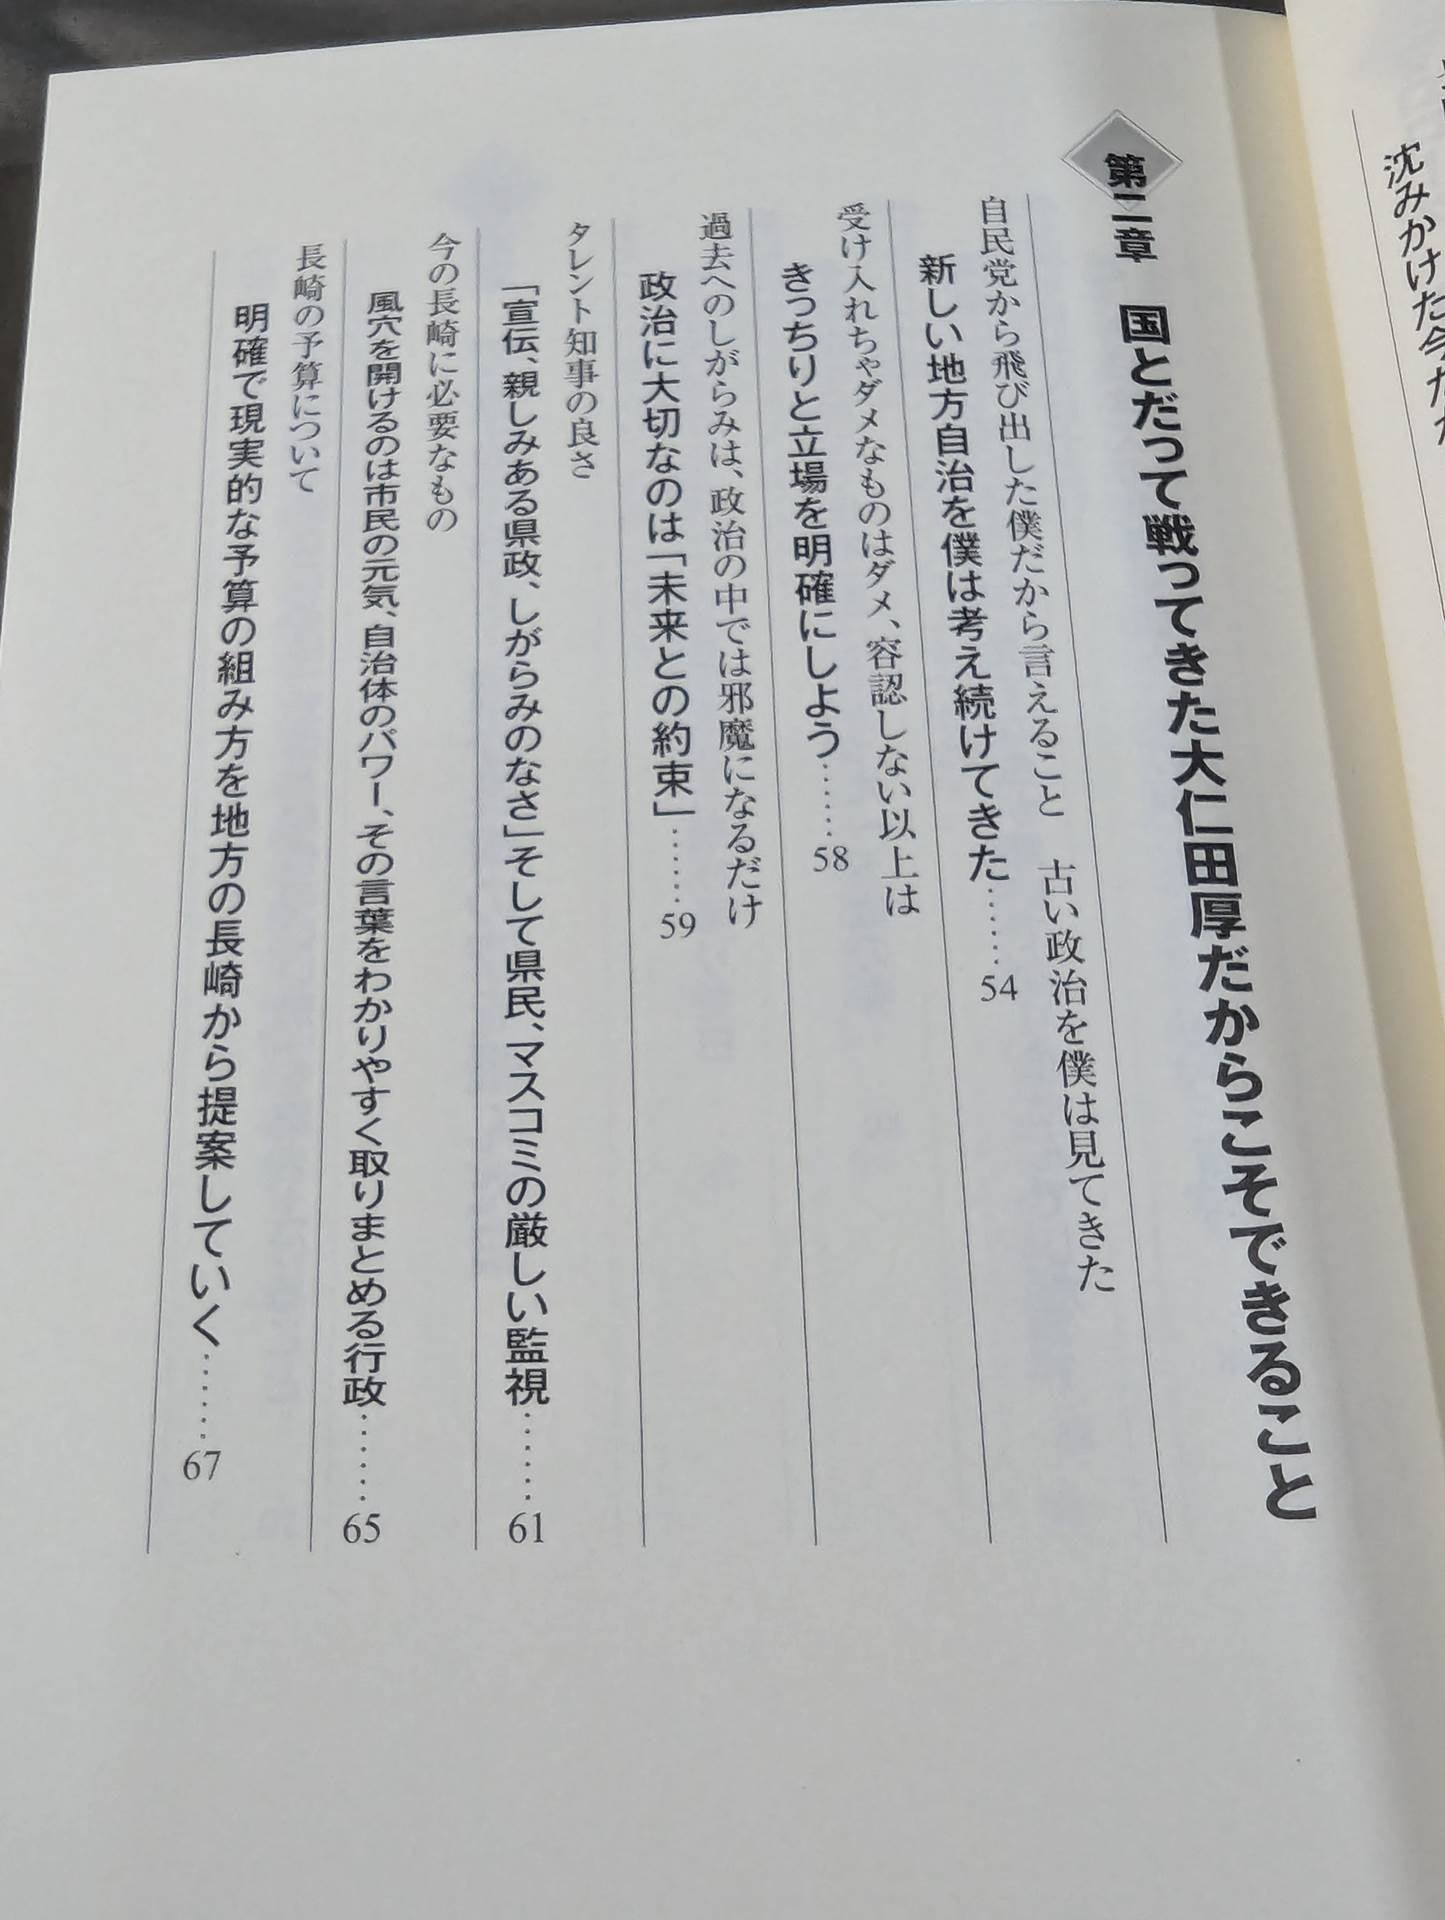 沈みかけた今だか
第二章　国とだって戦ってきた大仁田厚だからこそできること
自民党から飛び出した僕だから言えること　古い政治を僕は見てきた
新しい地方自治を僕は考え続けてきた……54
受け入れちゃダメなものはダメ、容認しない以上は
きっちりと立場を明確にしよう……58
過去へのしがらみは、政治の中では邪魔になるだけ
政治に大切なのは「未来との約束」……59
タレント知事の良さ
「宣伝、親しみある県政、しがらみのなさ」そして県民、マスコミの厳しい監視……61
今の長崎に必要なもの
風穴を開けるのは市民の元気、自治体のパワー、その言葉をわかりやすく取りまとめる行政……65
長崎の予算について
明確で現実的な予算の組み方を地方の長崎から提案していく……67